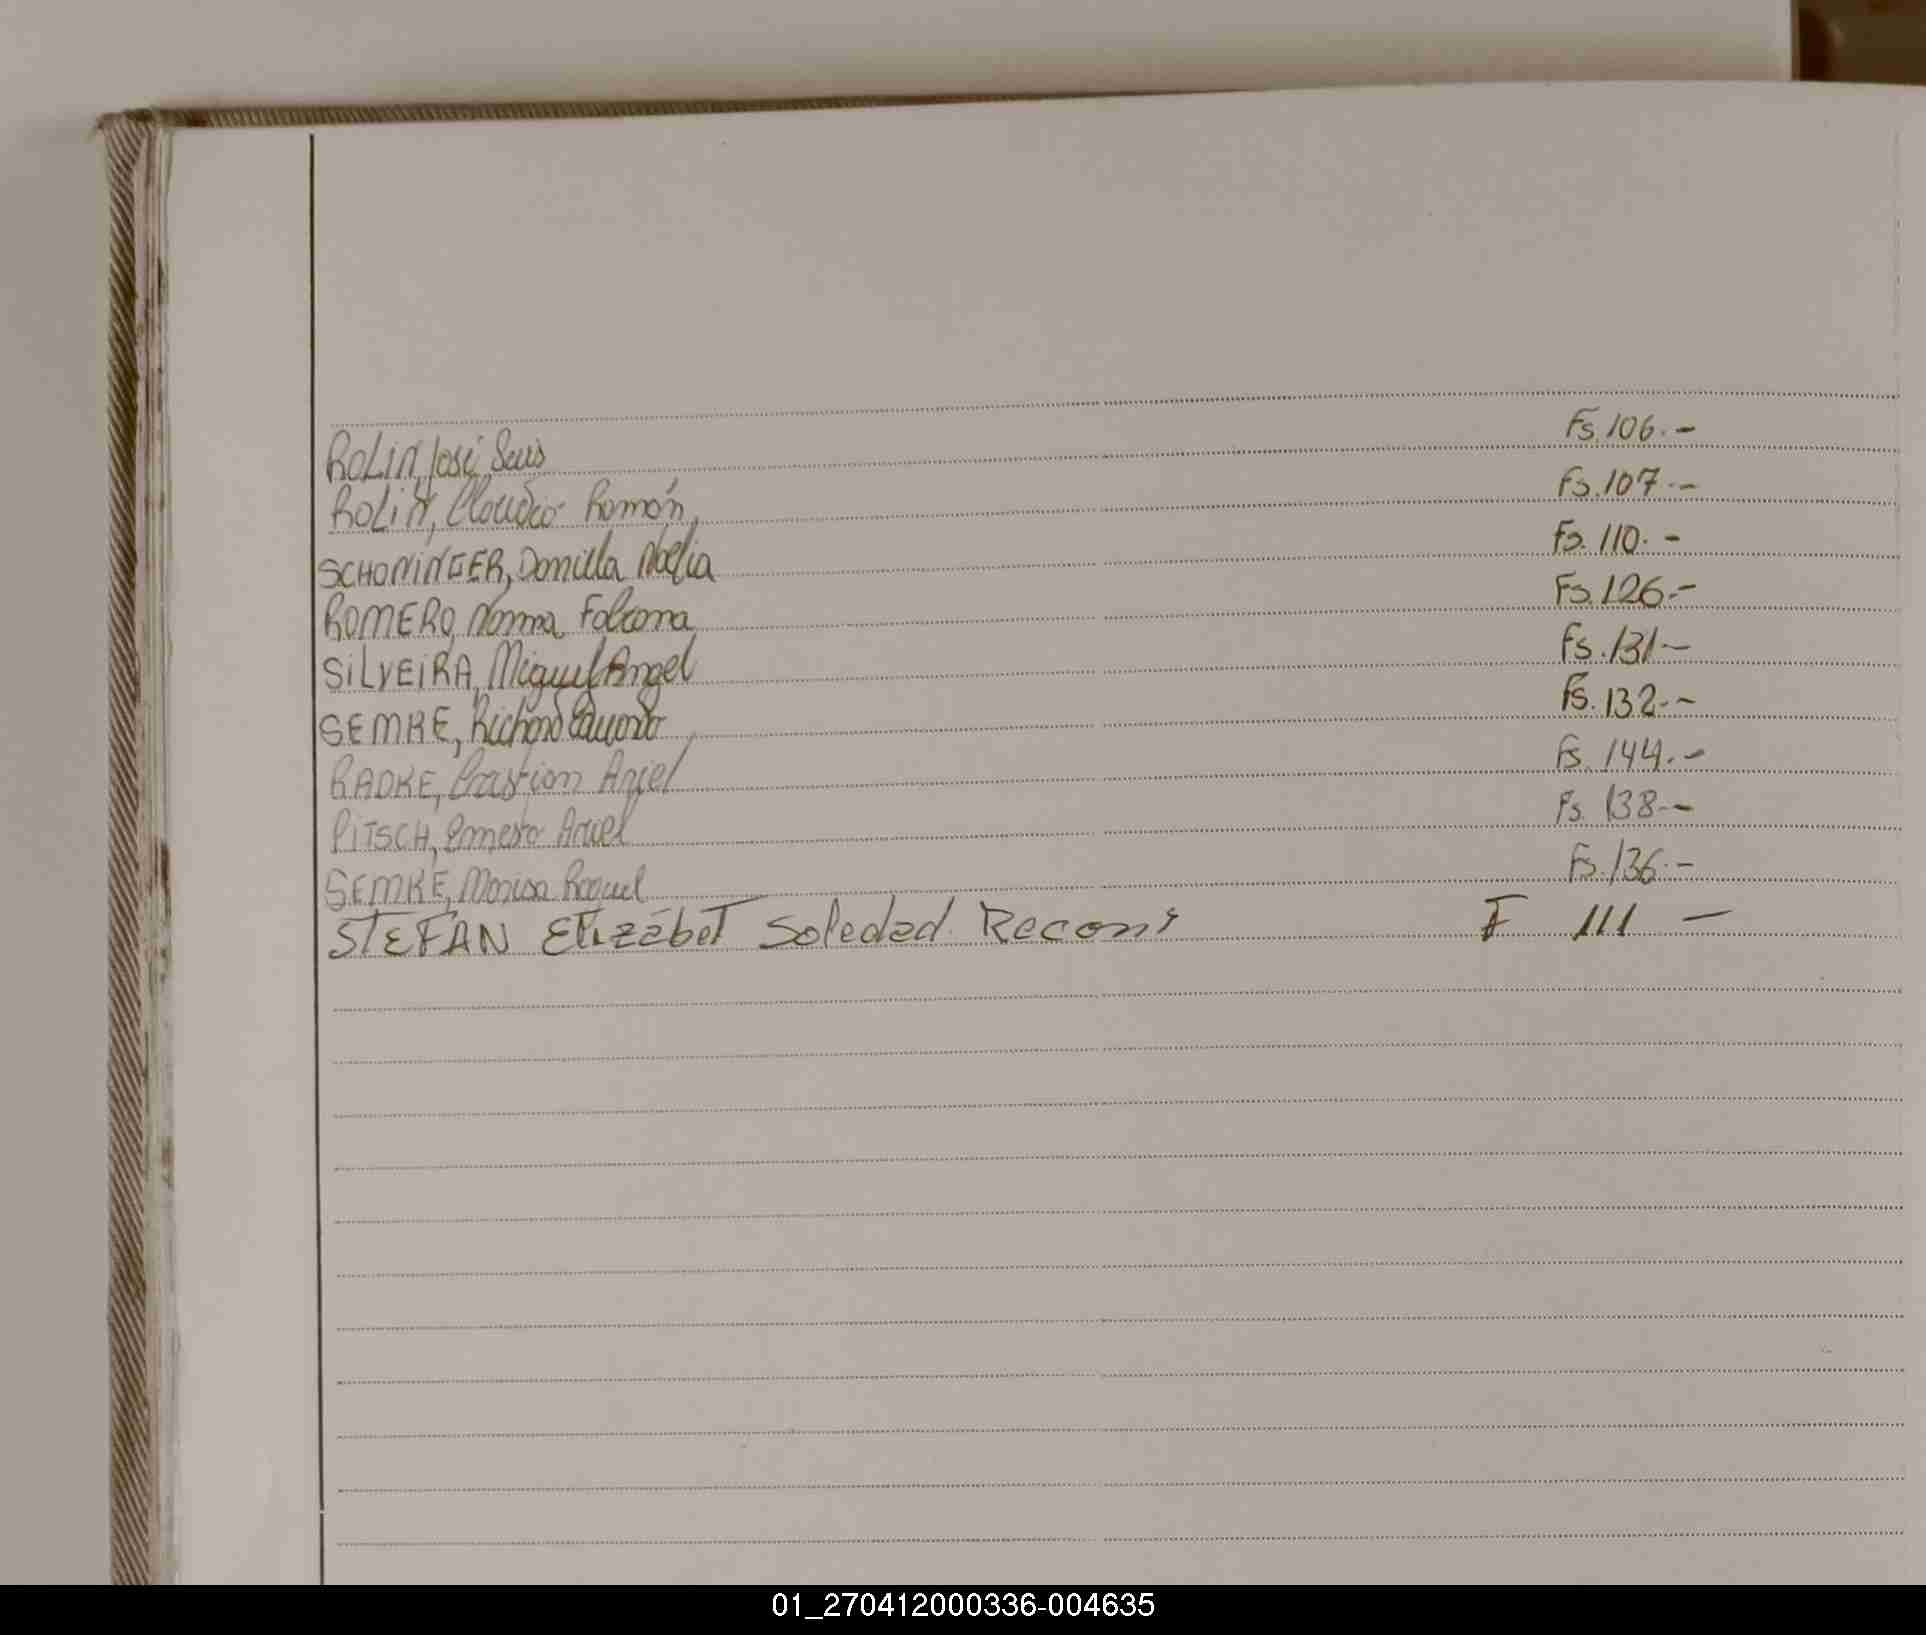 ROLIN, José Luis Fs. 106.-
ROLIN, Claudio Román, Fs. 107.-
SCHONINGER, Domilla Noelia Fs. 110.-
ROMERO, Norma Fs. 126.-
SILVEIRA, Miguel Angel Fs. 131-
SEMKE, Richard Eduardo Fs. 132.-
RADKE, Cristian Ariel Fs. 144.-
PITSCH, Ernesto Ariel Fs. 138.-
SEMKE, Marisa Raquel Fs. 136.-
STEFAN Elizabet Soledad Recons F 111 -
01_270412000336-004635